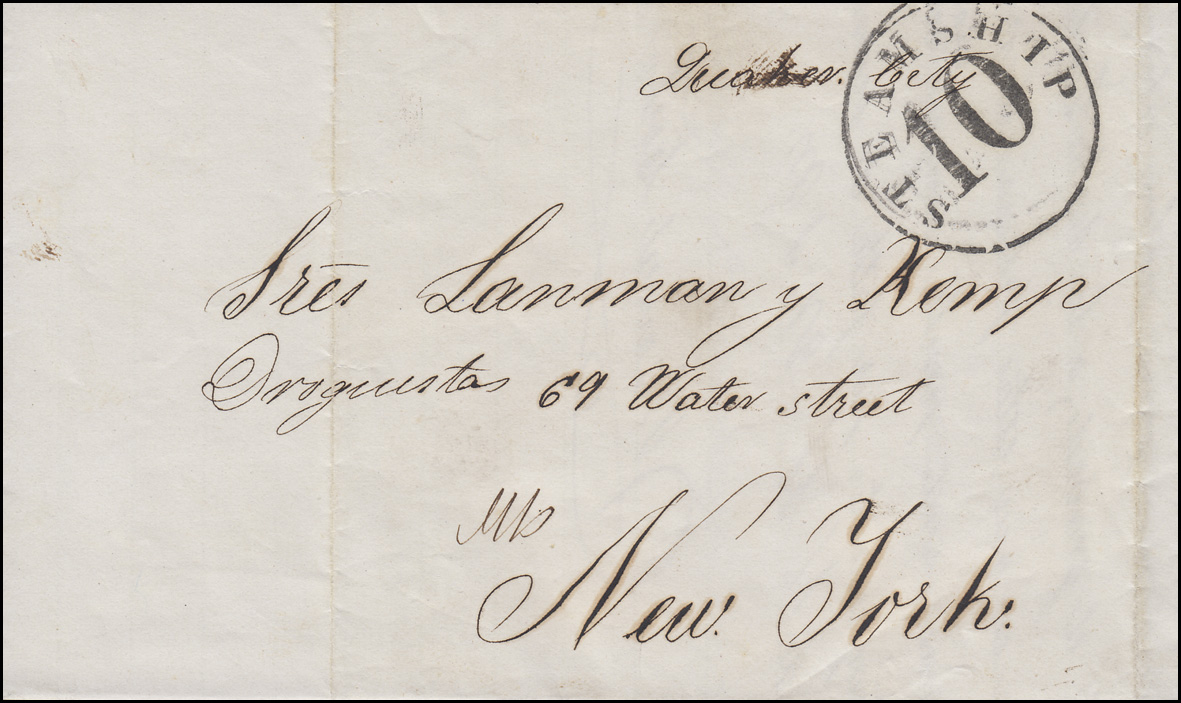 Quaker. City
STEAMSHIP
10
Srēs Lanman y Kemp
Droguistas 69 Water street
New. York.